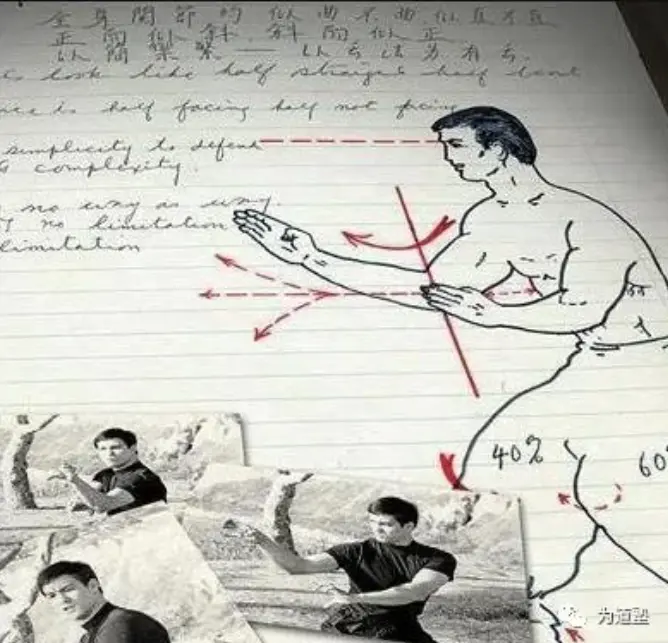 全身關節的似曲不曲.似直不直
正的似斜.斜的似正
以簡 繁 — 以 法为有
look like half straight half bent
is half facing half not facing
simplicity to defend
complexity.
no way as way.
no limitation
limitation
40%
60%
为道塾